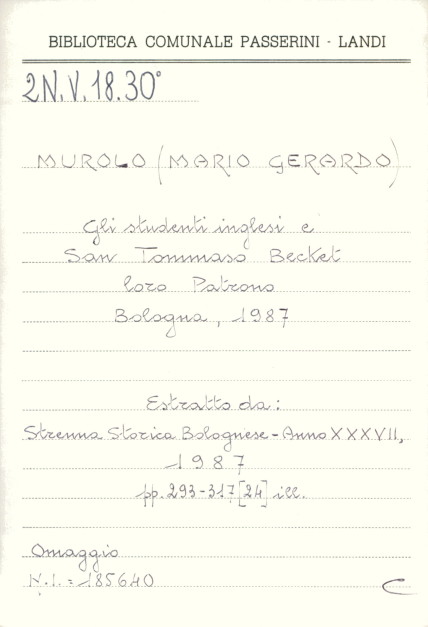 BIBLIOTECA COMUNALE PASSERINI - LANDI
2N.V.18.30°
MUROLO (MARIO GERARDO)
Gli studenti inglesi e
San Tommaso Becket
loro Patrono
Bologna, 1987
Estratto da:
Strenna Storica Bolognese - Anno XXXVII,
1987
pp. 293-317 [24] ill.
Omaggio
N.I. = 185640
C